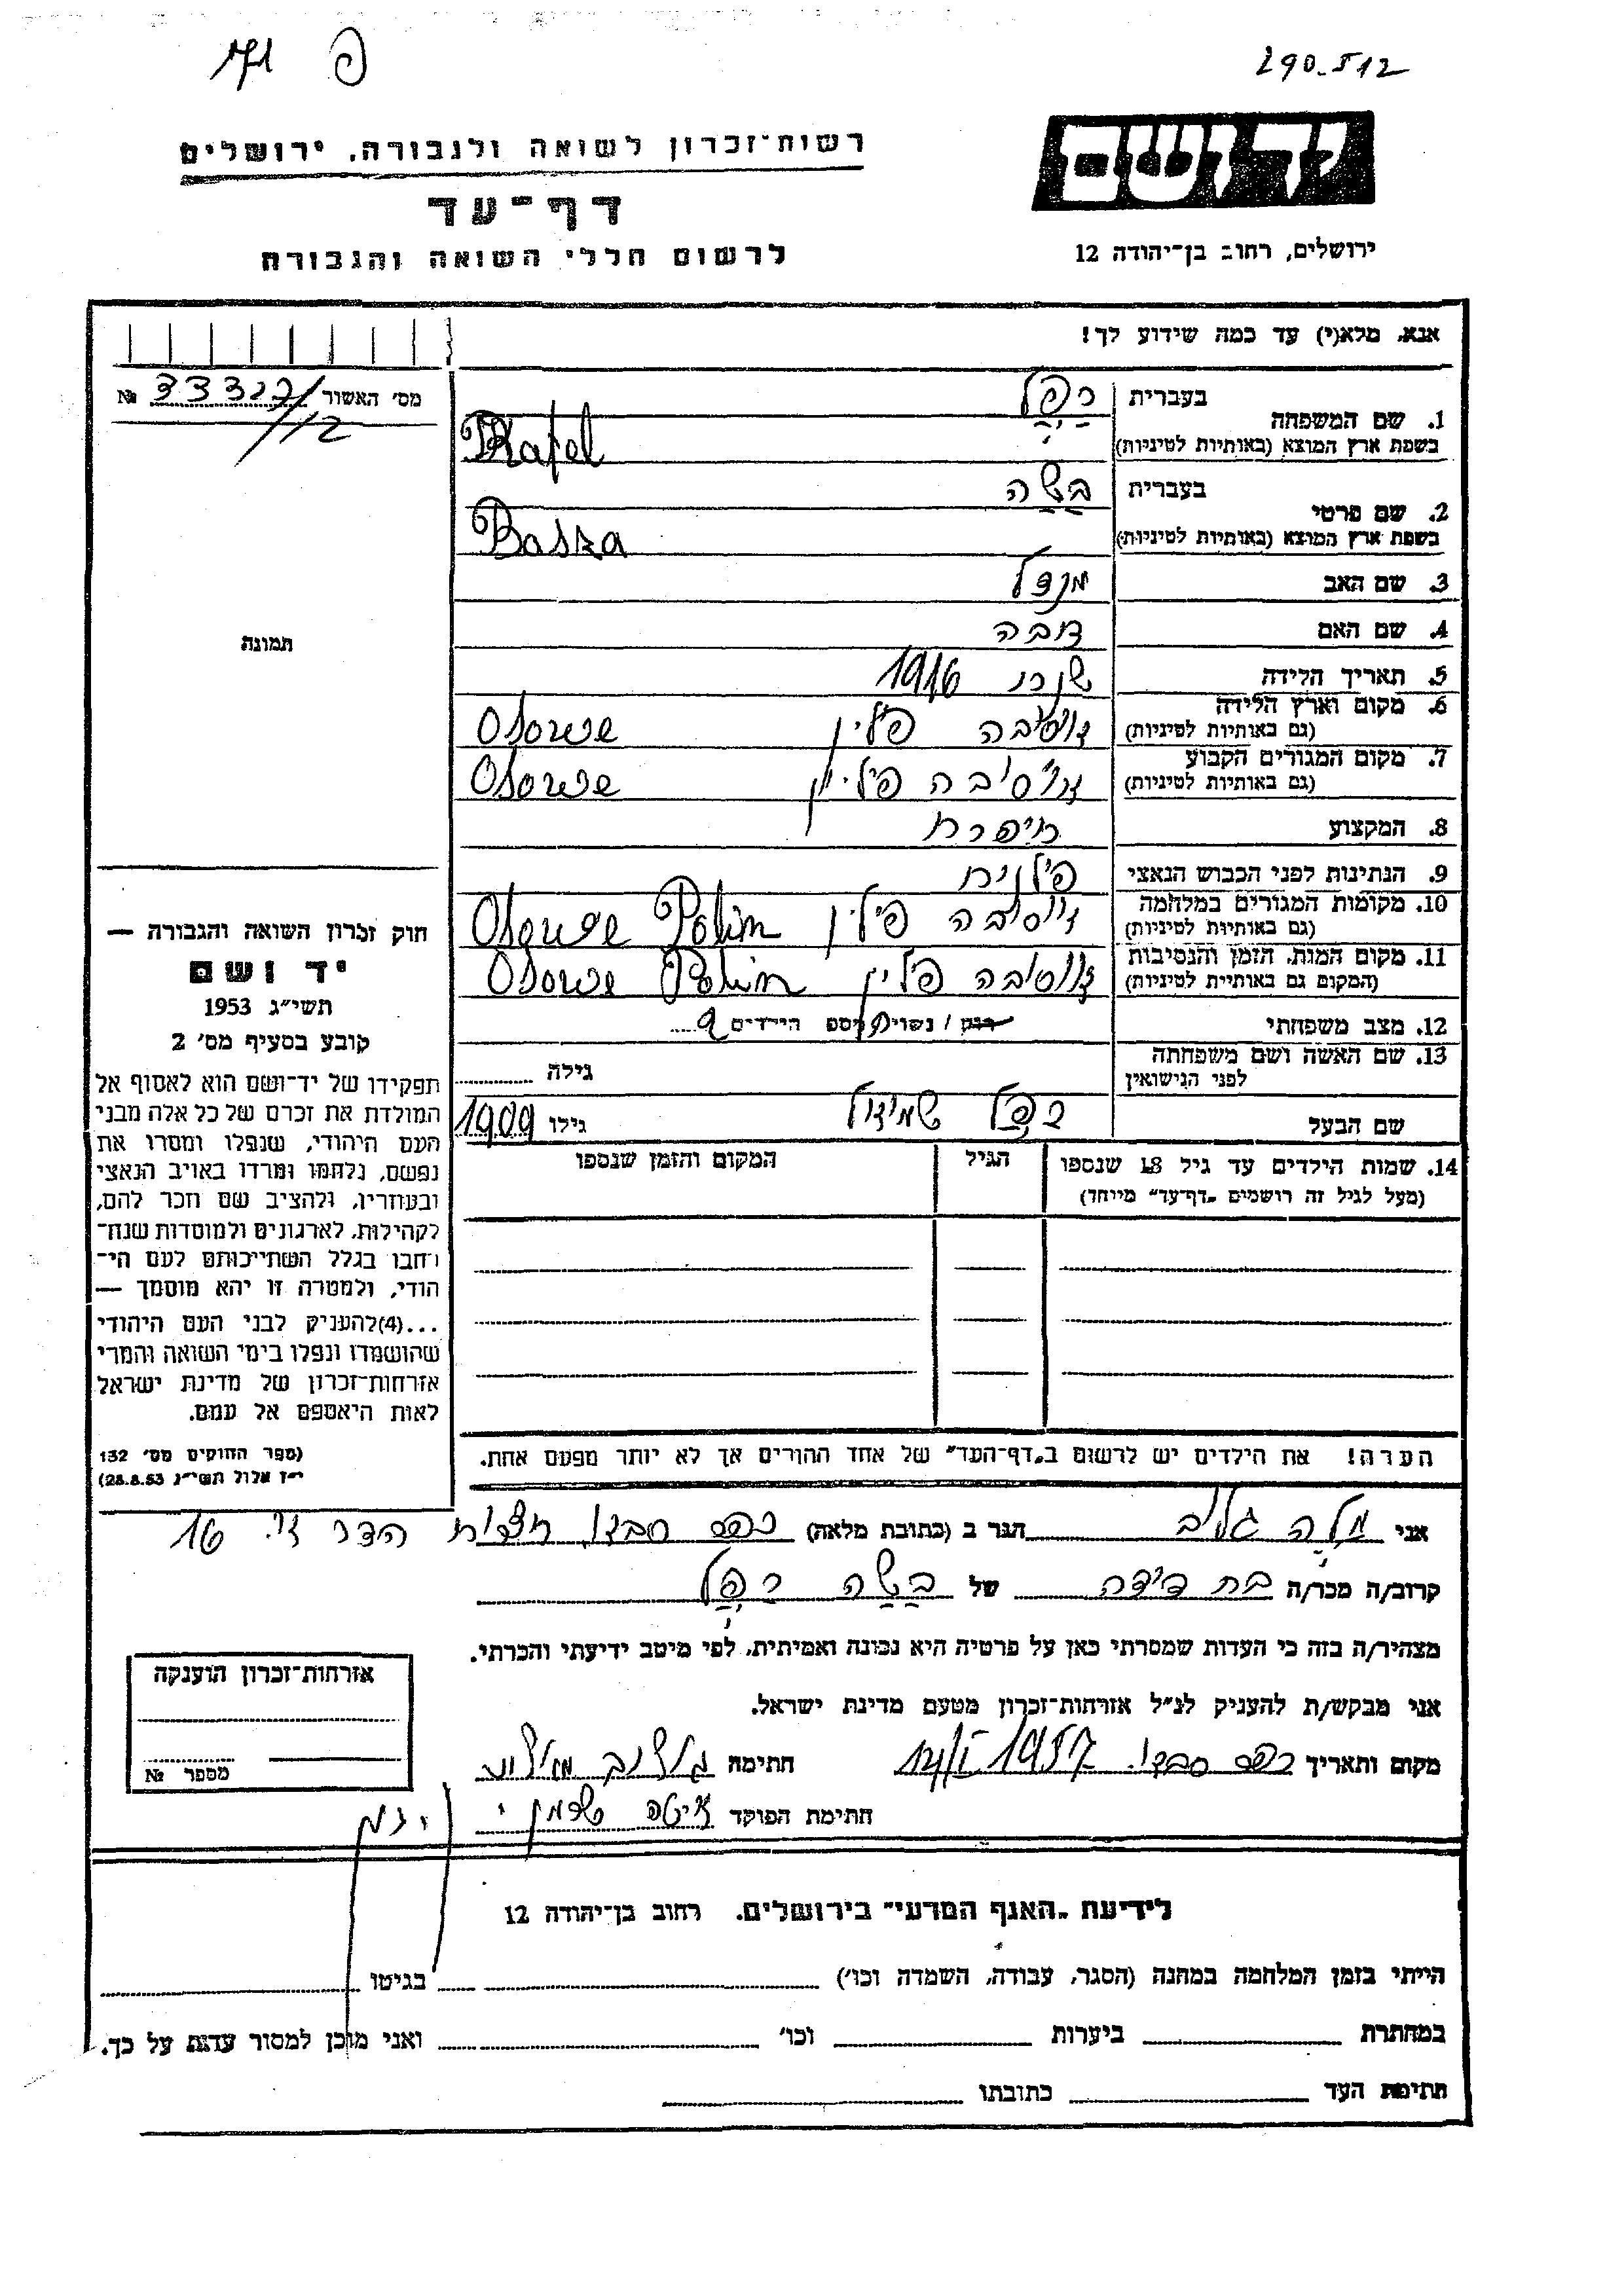 290-512
פ
171
יד ושם
רשות־זכרון לשואה ולגבורה, ירושלים
דף־עד
לרשום חללי השואה והגבורה
ירושלים, רחוב בן־יהודה 12
אנא, מלא(י) עד כמה שידוע לך!
מס' האשור №
1. שם המשפחה
בעברית רפל
בשפת ארץ המוצא (באותיות לטיניות) Rafel
2. שם פרטי
בעברית בשה
בשפת ארץ המוצא (באותיות לטיניות) Basza
3. שם האב מנדל
4. שם האם דובה
5. תאריך הלידה שנת 1916
6. מקום וארץ הלידה (גם באותיות לטיניות) פולין Osowe
7. מקום המגורים הקבוע (גם באותיות לטיניות) פולין Osowe
8. המקצוע תופרת
9. הנתינות לפני הכבוש הנאצי פולנית
10. מקומות המגורים במלחמה (גם באותיות לטיניות) פולין Osowe Polin
11. מקום המות, הזמן והנסיבות (המקום גם באותיות לטיניות) פולין Osowe Polin
12. מצב משפחתי רווק / נשוי מספר הילדים
13. שם האשה ושם משפחתה לפני הנישואין גילה
שם הבעל רפל שמואל גילו 1909
14. שמות הילדים עד גיל 18 שנספו הגיל המקום והזמן שנספו
(מעל לגיל זה רושמים „דף־עד” מייוחד)
הערה! את הילדים יש לרשום ב„דף־העד” של אחד ההורים אך לא יותר מפעם אחת.
תמונה
חוק זכרון השואה והגבורה —
יד ושם
תשי״ג 1953
קובע בסעיף מס' 2
תפקידו של יד־ושם הוא לאסוף אל
המולדת את זכרם של כל אלה מבני
העם היהודי, שנפלו ומסרו את
נפשם, נלחמו ומרדו באויב הנאצי
ובעוזריו, ולהציב שם וזכר להם,
לקהילות, לארגונים ולמוסדות שנח־
רחבו בגלל השתייכותם לעם הי־
הודי, ולמטרה זו יהא מוסמך —
...(4)להעניק לבני העם היהודי
שהושמדו ונפלו בימי השואה והמרי
אזרחות־זכרון של מדינת ישראל
לאות היאספם אל עמם.
(ספר החוקים מס' 132
י״ז אלול תשי״ג 28.8.53)
אני הגר ב (כתובת מלאה) כפר סבא, הדר 16
קרוב/ה מכר/ה בת דודה של בשה רפל
מצהיר/ה בזה כי העדות שמסרתי כאן על פרטיה היא נכונה ואמיתית, לפי מיטב ידיעתי והכרתי.
אני מבקש/ת להעניק לנ״ל אזרחות־זכרון מטעם מדינת ישראל.
מקום ותאריך כפר סבא. 1957 חתימה
חתימת הפוקד
אזרחות־זכרון הוענקה
מספר №
לידיעת „האגף המדעי” בירושלים. רחוב בן־יהודה 12
הייתי בזמן המלחמה במחנה (הסגר, עבודה, השמדה וכו') בגיטו
במחתרת ביערות וכו' ואני מוכן למסור עדות על כך.
חתימת העד כתובתו